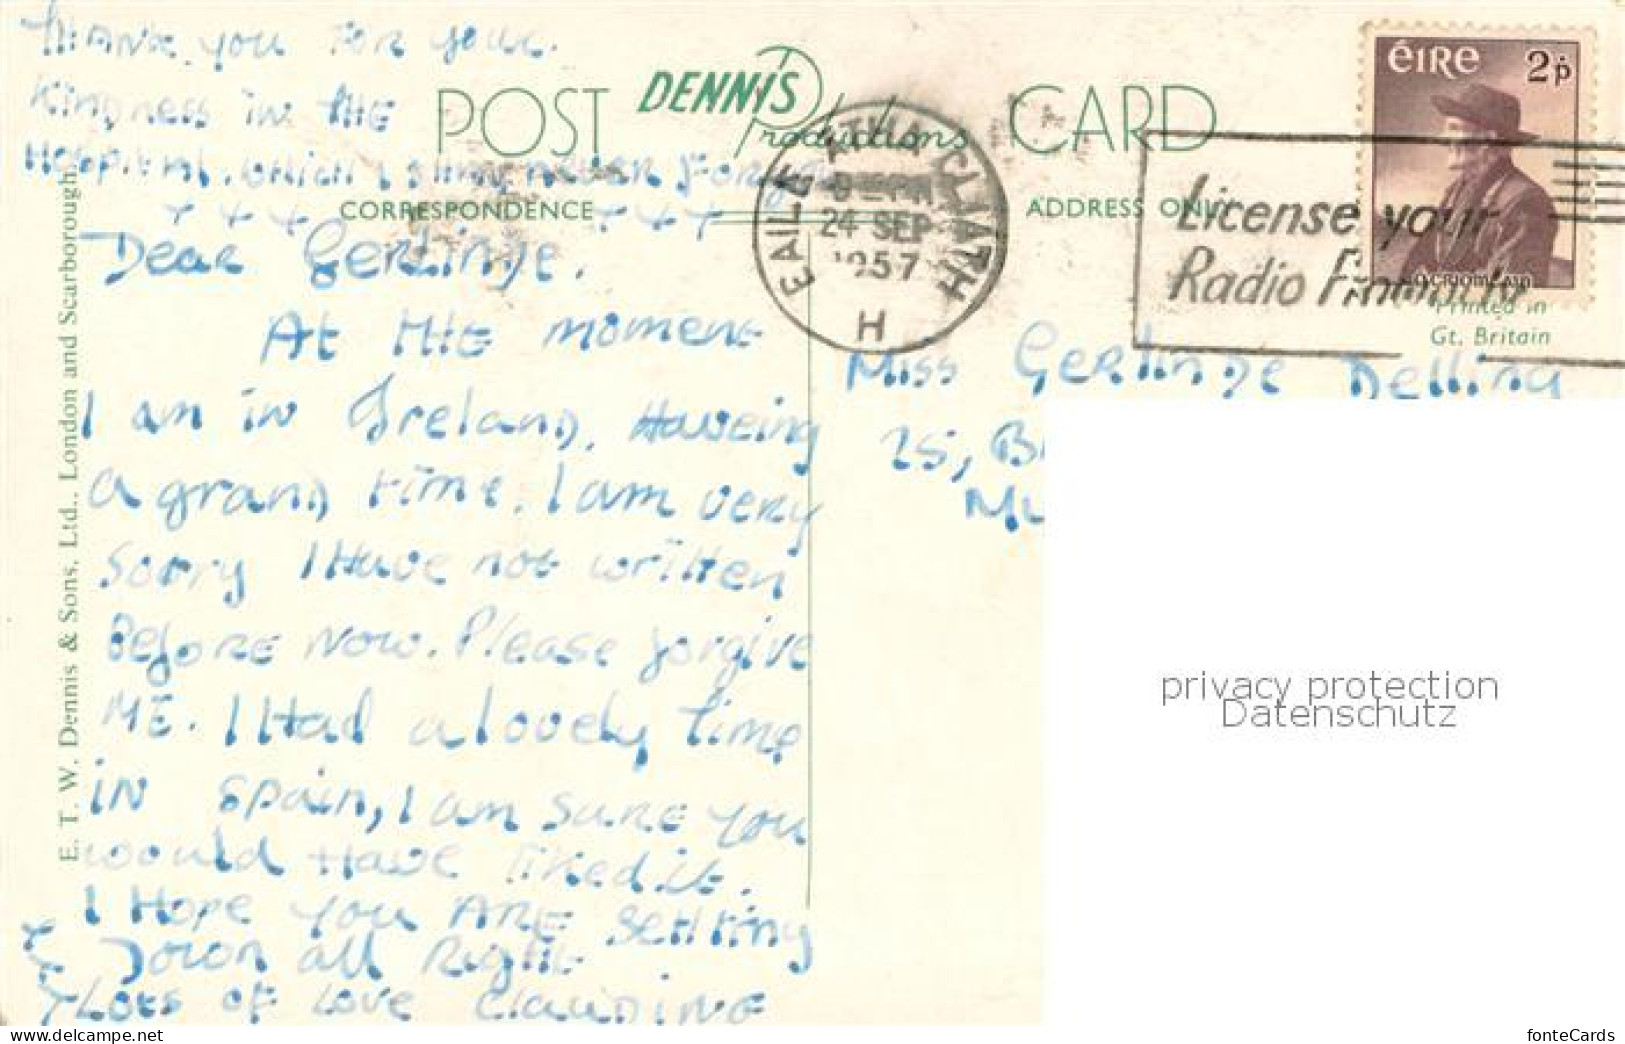 Thank you for your.
Kindness in the
Hospital, which I shall never forget
POST DENNIS Productions CARD
CORRESPONDENCE
ADDRESS ONLY
Dear Gerlinde,
At the moment
I am in Ireland, Haveing
a grand time. I am very
sorry I Have not written
Before now. Please forgive
ME. I Had a lovely time
in spain, I am sure you
would Have liked it.
I Hope you ARE settling
Down all Right
Lots of Love Claudine
E. T. W. Dennis & Sons, Ltd., London and Scarborough.
BAILE ATHA CLIATH
24 SEP
1957
H
License your
Radio
éire 2p
Printed in
Gt. Britain
Miss Gerlinde Delling
25, B
Mu
privacy protection
Datenschutz
fonteCards